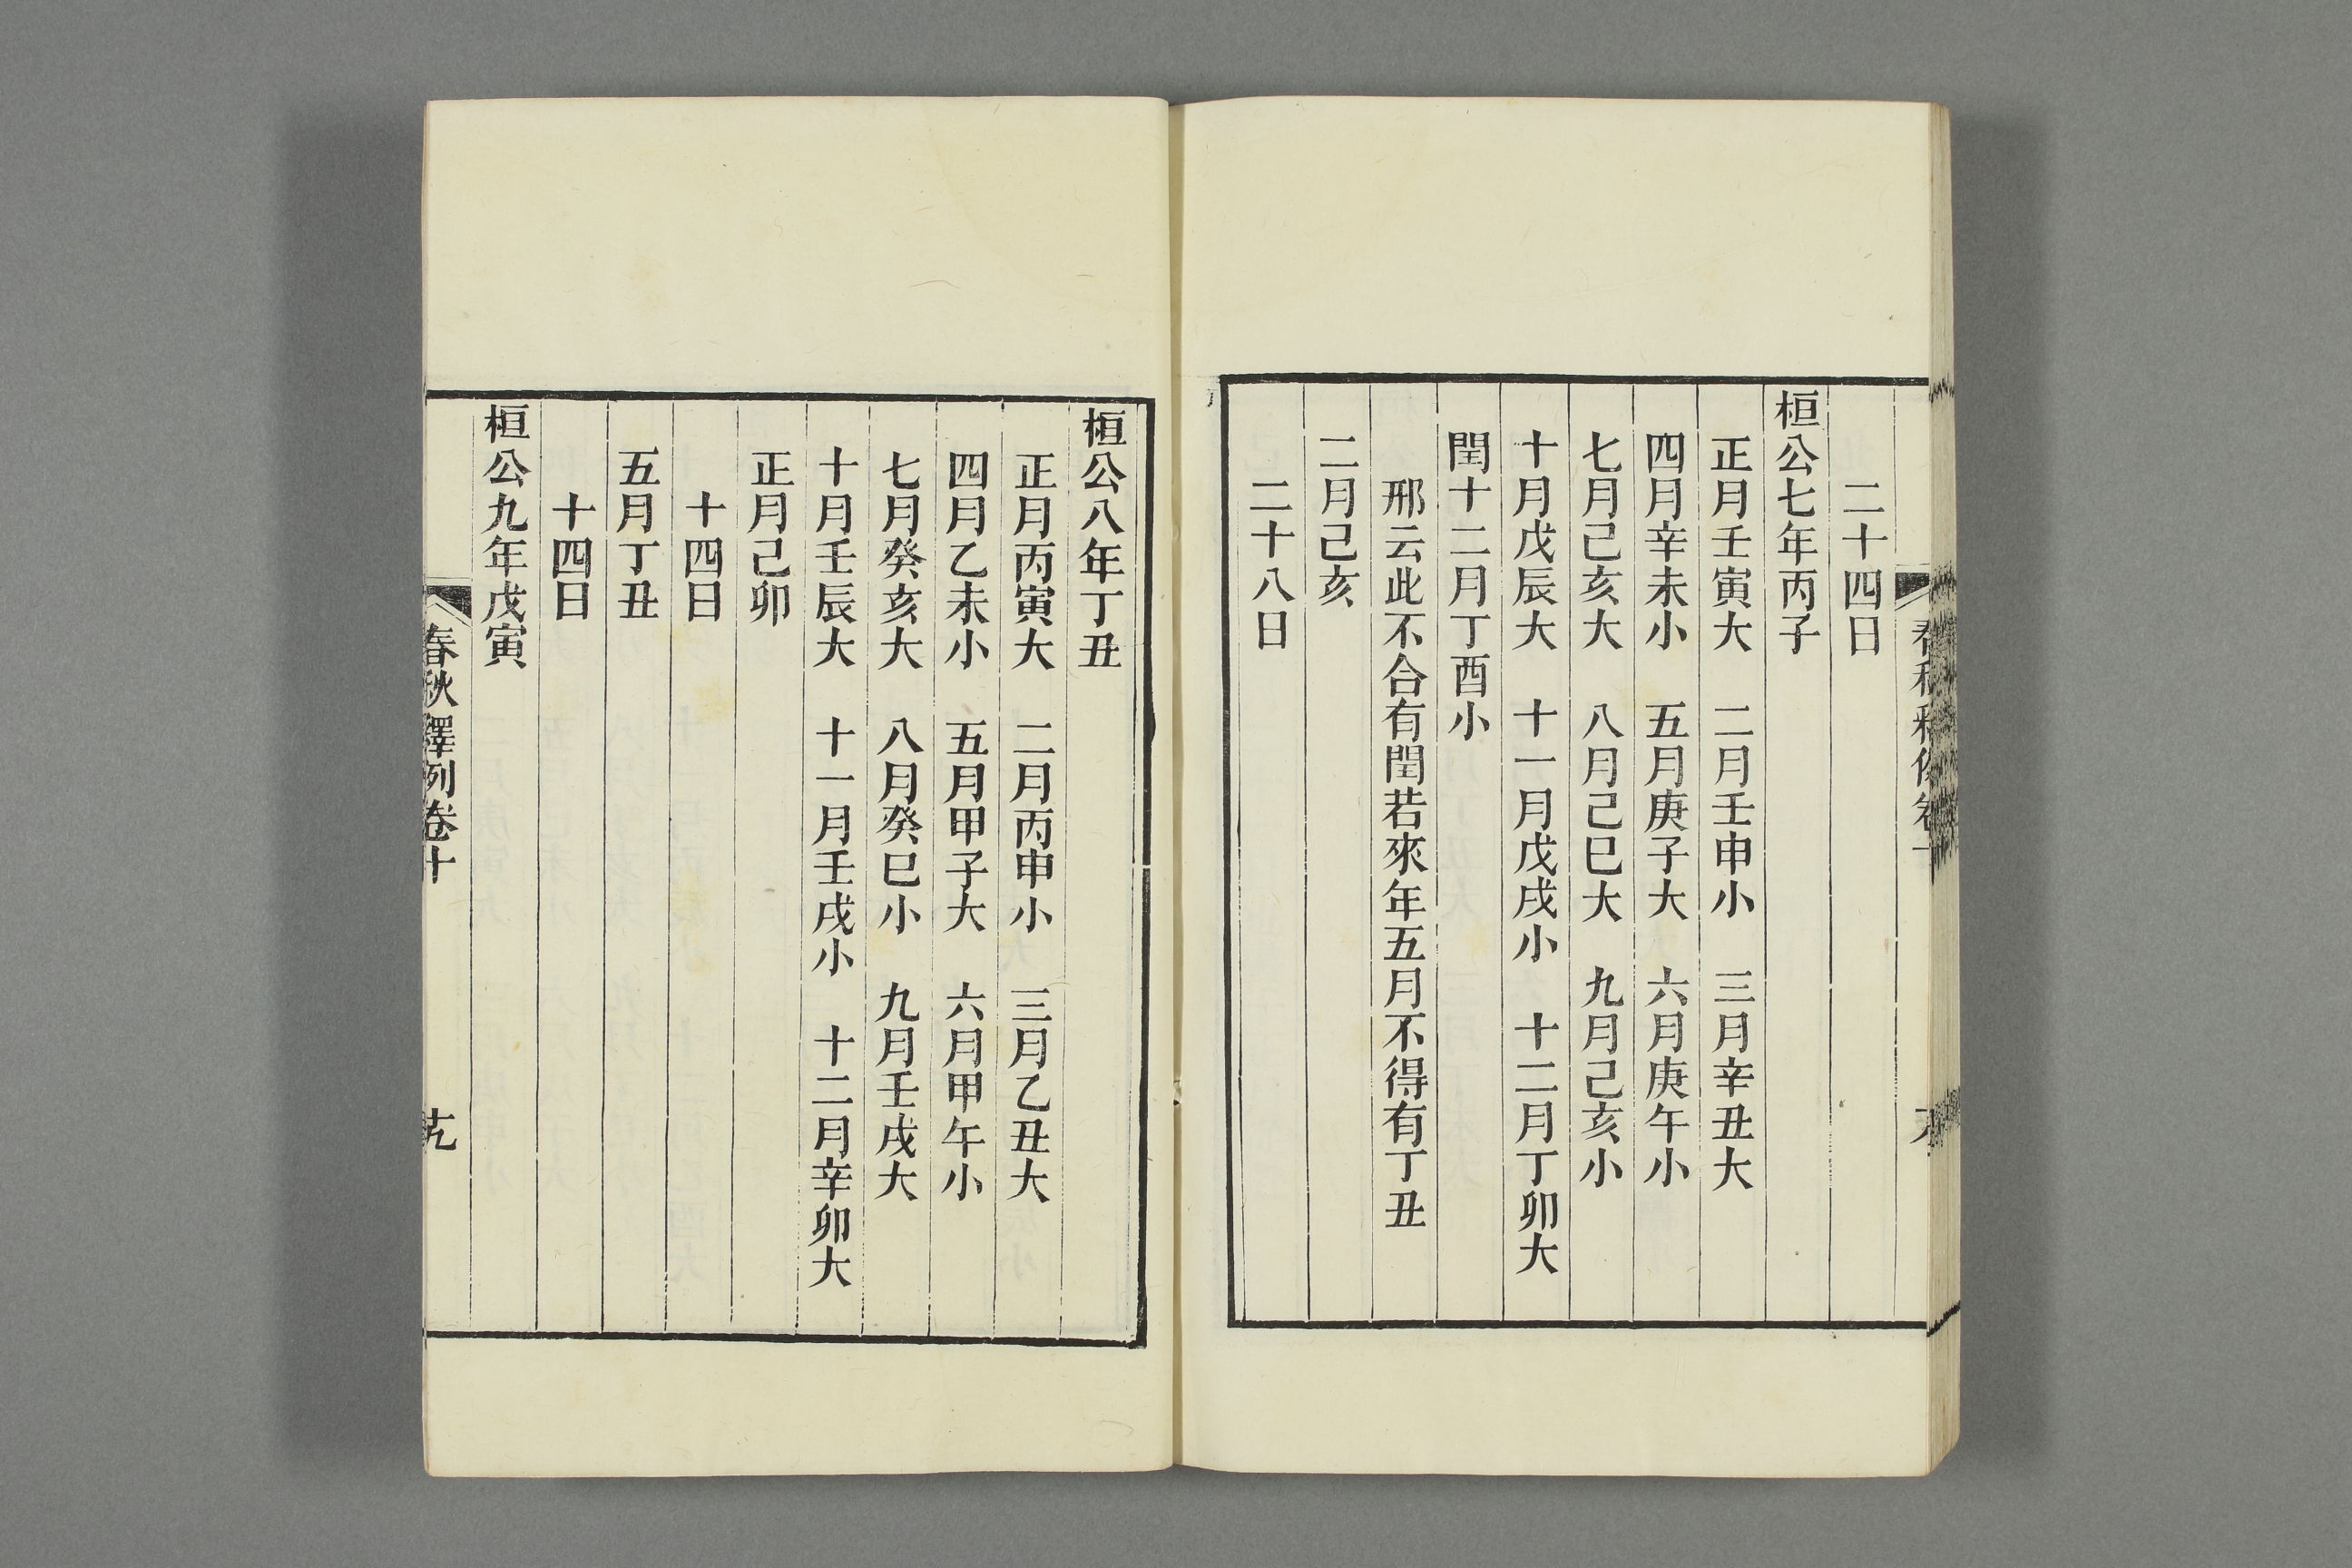 二十四日
桓公七年丙子
正月壬寅大　二月壬申小　三月辛丑大
四月辛未小　五月庚子大　六月庚午小
七月己亥大　八月己巳大　九月己亥小
十月戊辰大　十一月戊戌小　十二月丁卯大
閏十二月丁酉小
邢云此不合有閏若來年五月不得有丁丑
二月己亥
二十八日
桓公八年丁丑
正月丙寅大　二月丙申小　三月乙丑大
四月乙未小　五月甲子大　六月甲午小
七月癸亥大　八月癸巳小　九月壬戌大
十月壬辰大　十一月壬戌小　十二月辛卯大
正月己卯
十四日
五月丁丑
十四日
桓公九年戊寅
春秋釋例卷十
十九